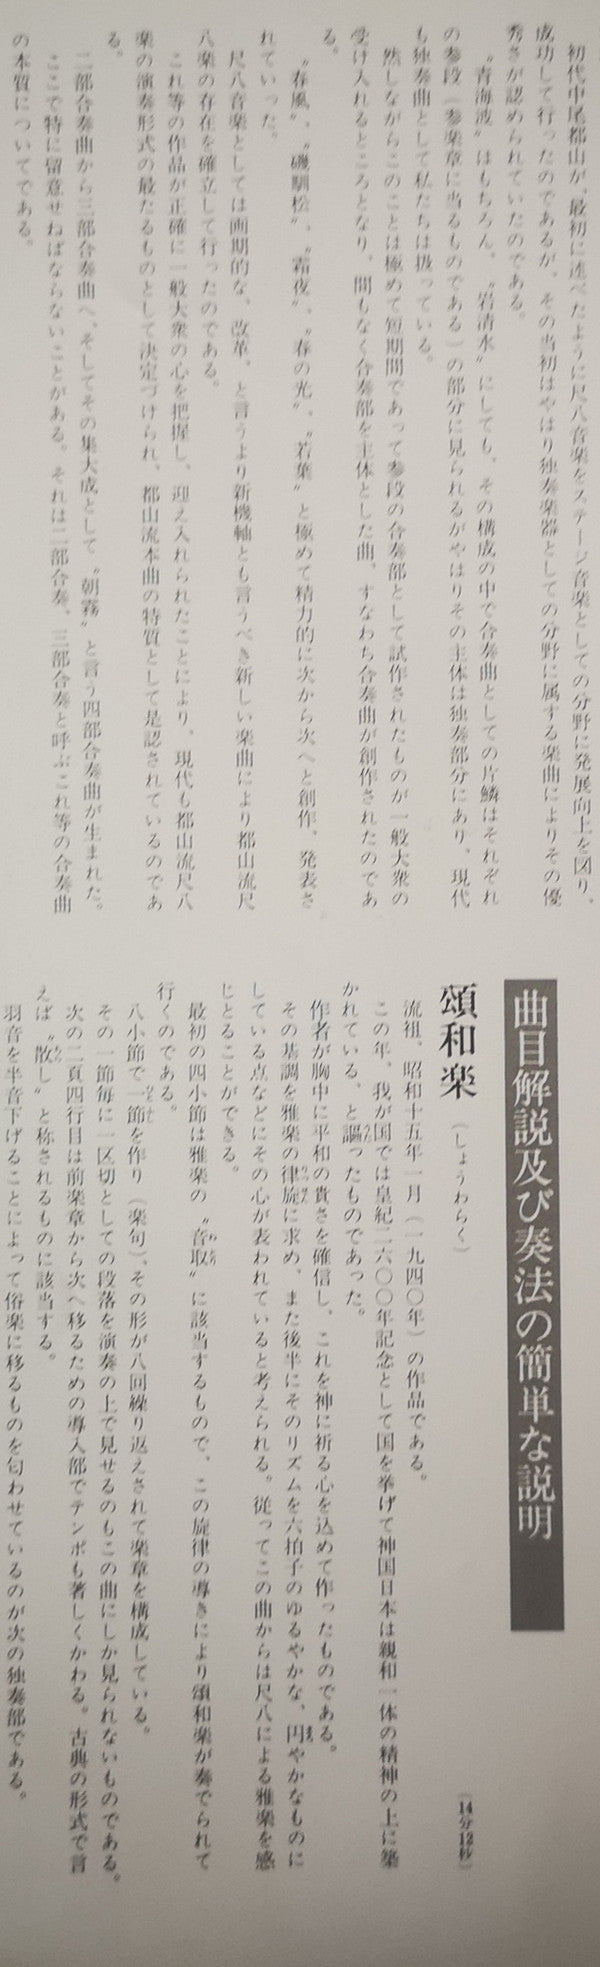 初代中尾都山が、最初に述べたように尺八音楽をステージ音楽としての分野に発展向上を図り、
成功して行ったのであるが、その当初はやはり独奏楽器としての分野に属する楽曲によりその優
秀さが認められていたのである。
〝青海波〟はもちろん、〝岩清水〟にしても、その構成の中で合奏曲としての片鱗はそれぞれ
の参段（参楽章に当るものである）の部分に見られるがやはりその主体は独奏部分にあり、現代
も独奏曲として私たちは扱っている。
然しながらこのことは極めて短期間であって参段の合奏部として試作されたものが一般大衆の
受け入れるところとなり、間もなく合奏部を主体とした曲、すなわち合奏曲が創作されたのであ
る。
〝春風〟、〝磯馴松〟、〝霜夜〟、〝春の光〟、〝若葉〟と極めて精力的に次から次へと創作、発表さ
れていった。
尺八音楽としては画期的な、改革、と言うより新機軸とも言うべき新しい楽曲により都山流尺
八楽の存在を確立して行ったのである。
これ等の作品が正確に一般大衆の心を把握し、迎え入れられたことにより、現代も都山流尺八
楽の演奏形式の最たるものとして決定づけられ、都山流本曲の特質として是認されているのであ
る。
二部合奏曲から三部合奏曲へ、そしてその集大成として〝朝霧〟と言う四部合奏曲が生まれた。
ここで特に留意せねばならないことがある。それは二部合奏、三部合奏と呼ぶこれ等の合奏曲
の本質についてである。
曲目解説及び奏法の簡単な説明
頌和楽（しょうわらく）（14分12秒）
流祖、昭和十五年一月（一九四〇年）の作品である。
この年、我が国では皇紀二六〇〇年記念として国を挙げて神国日本は親和一体の精神の上に築
かれている、と謳ったものであった。
作者が胸中に平和の貴さを確信し、これを神に祈る心を込めて作ったものである。
その基調を雅楽の律旋に求め、また後半にそのリズムを六拍子のゆるやかな、円やかなものに
している点などにその心が表われていると考えられる。従ってこの曲からは尺八による雅楽を感
じとることができる。
最初の四小節は雅楽の〝音取〟に該当するもので、この旋律の導きにより頌和楽が奏でられて
行くのである。
八小節で一節を作り（楽句）、その形が八回繰り返えされて楽章を構成している。
その一節毎に一区切としての段落を演奏の上で見せるのもこの曲にしか見られないものである。
次の二頁四行目は前楽章から次へ移るための導入部でテンポも著しくかわる。古典の形式で言
えば〝散し〟と称されるものに該当する。
羽音を半音下げることによって俗楽に移るものを匂わせているのが次の独奏部である。